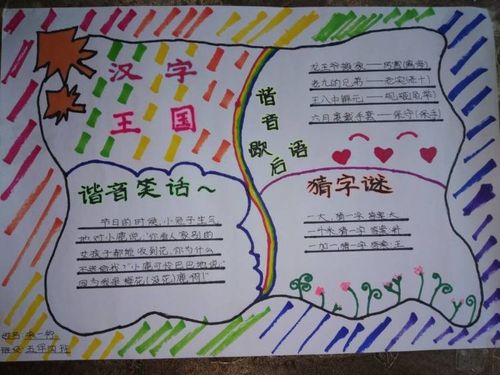 汉字
王国
谐音
歇后语
老九的兄弟——老实(老十)
六月里戴手套——保守(保手)
谐音笑话~
节日的时候,小兔子生气
地对小鹿说:"你看人家别的
女孩子都能收到花,你为什么
不送给我?"小鹿可怜巴巴地说:
因为我是梅花(没花)鹿啊!"
猜字谜
一大,猜一字 答案:天
一个米 猜一字 答案:
一加一,猜一字 答案:王
姓名:
班级:五年四班